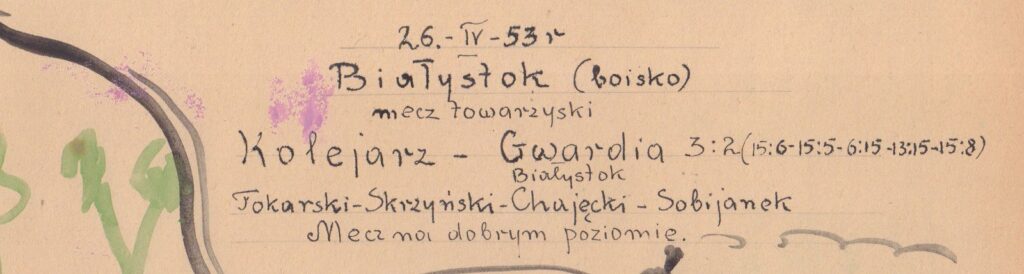 26.-IV-53r
Białystok (boisko)
mecz towarzyski
Kolejarz - Gwardia 3:2 (15:6-15:5-6:15-13:15-15:8)
Białystok
Tokarski-Skrzyński-Chajęcki-Sobijanek
Mecz na dobrym poziomie.